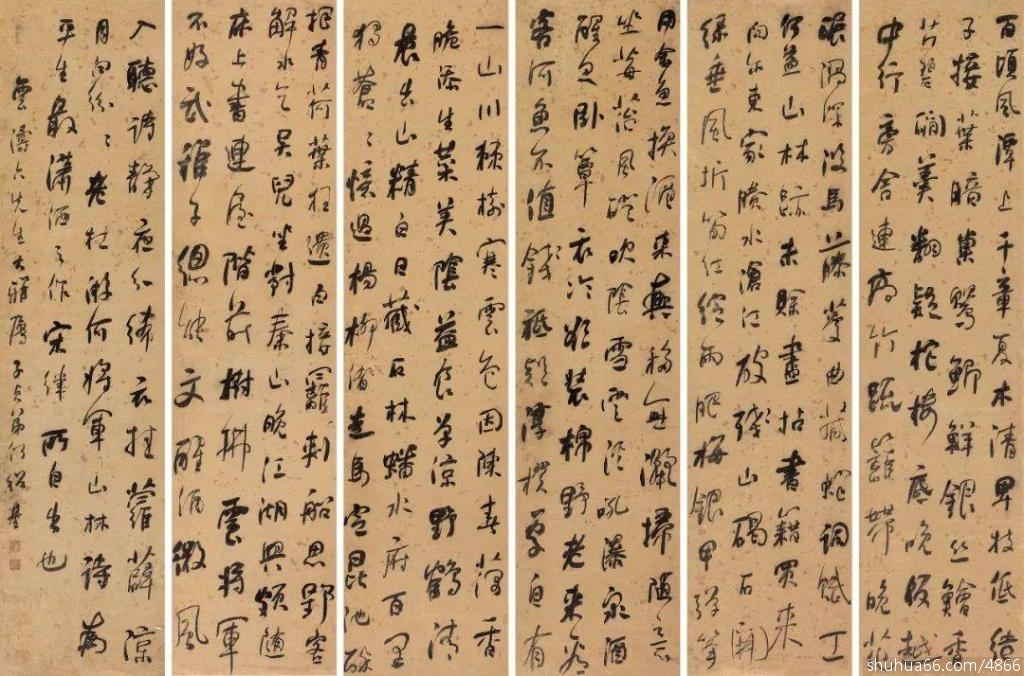 百頃風潭上千章夏木清卑枝低結
子接葉暗巢鶯鯽鮮銀絲鱠香
芹碧澗羹翻疑柁樓底晚飯越
中行旁舍連高竹疏籬帶晚花
碾渦深沒馬藤蔓曲藏蛇詞賦工
何益山林跡未賒盡拈書籍買來
問爾東家賸水滄江破殘山碣石開
綠垂風折筍紅綻雨肥梅銀甲彈箏
用金魚換酒來興移無灑掃隨意
坐莓苔風磴吹陰雪雲門吼瀑泉酒
醒思臥簟衣冷欲裝棉野老來看
客河魚不值錢祗疑淳樸處自有
一山川棘樹寒雲色茵陳春藕香
脆添生菜美陰益食單涼野鶴清
晨出山精白日藏石林蟠水府百里
獨蒼〻憶過楊柳渚走馬定昆池醉
把青荷葉狂遺白接䍦刺船思郢客
解水乞吳兒坐對秦山晚江湖興頗隨
床上書連屋階前樹拂雲將軍
不好武稚子總能文醒酒微風
入聽詩靜夜分絺衣挂蘿薜涼
月白紛〻老杜游何將軍山林詩為
平生最瀟洒之作宋律所自出也
雲濤六先生大雅屬子貞弟何紹基
shuhua66.com/4866